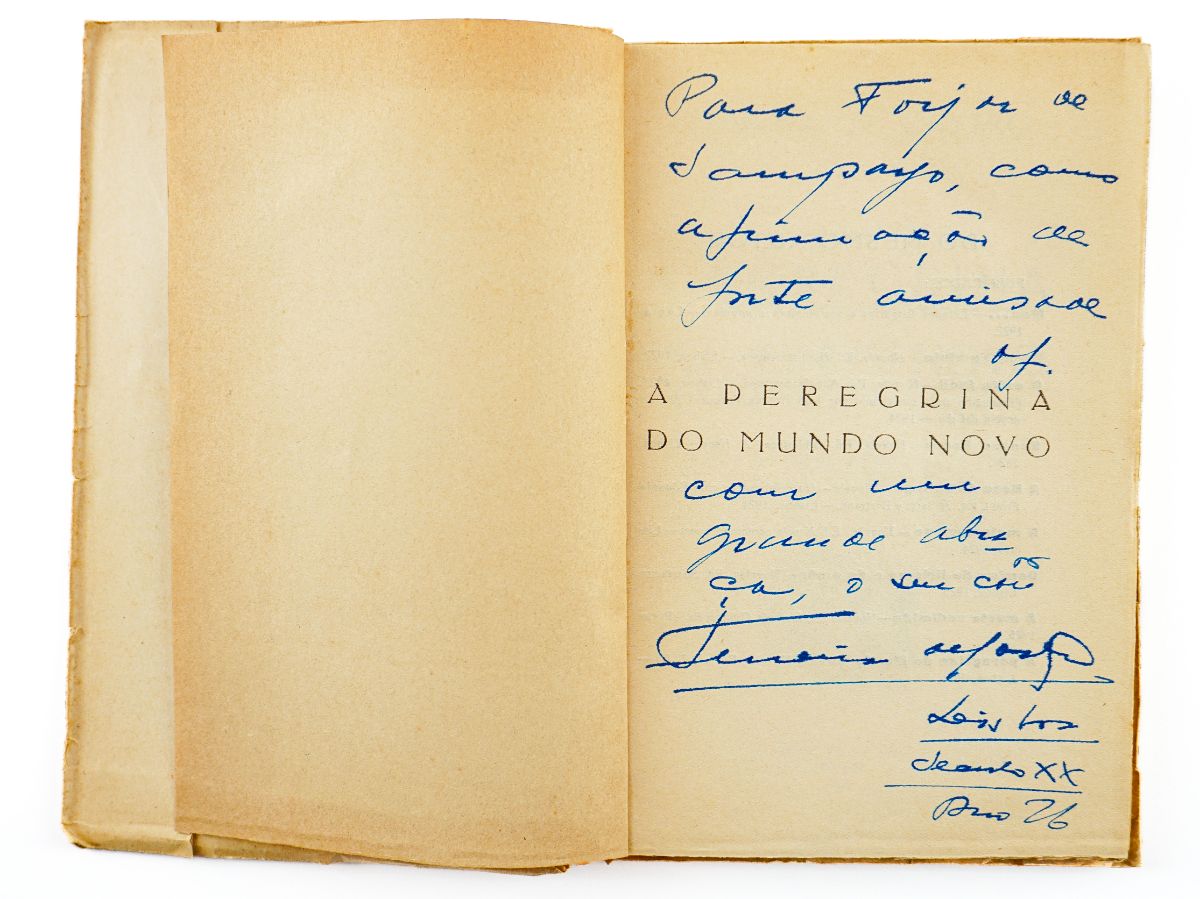 Para Forjaz de
Sampayo, como
afirmação de
forte amisade
of.
A PEREGRINA
DO MUNDO NOVO
com um
grande abra-
ço, o seu
Ferreira de Castro
Lisboa
Seculo XX
Ano 26